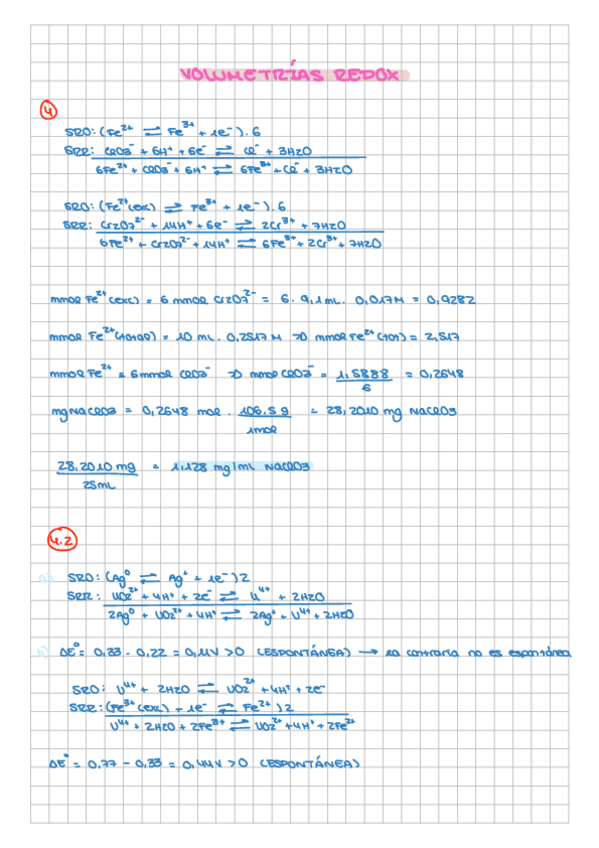 VOLUMETRÍAS REDOX
4
SRO: (Fe²⁺ ⇌ Fe³⁺ + 1e⁻) . 6
SRR: ClO3⁻ + 6H⁺ + 6e⁻ ⇌ Cl⁻ + 3H2O
6Fe²⁺ + ClO3⁻ + 6H⁺ ⇌ 6Fe³⁺ + Cl⁻ + 3H2O
SRO: (Fe²⁺(exc) ⇌ Fe³⁺ + 1e⁻) . 6
SRR: Cr2O7²⁻ + 14H⁺ + 6e⁻ ⇌ 2Cr³⁺ + 7H2O
6Fe²⁺ + Cr2O7²⁻ + 14H⁺ ⇌ 6Fe³⁺ + 2Cr³⁺ + 7H2O
mmol Fe²⁺(exc) = 6 mmol Cr2O7²⁻ = 6 . 9,1mL . 0,017M = 0,9282
mmol Fe²⁺(total) = 10 mL . 0,2517 M ⇒ mmol Fe²⁺(tot) = 2,517
mmol Fe²⁺ = 6mmol ClO3⁻ ⇒ mmol ClO3⁻ = 1,5888 / 6 = 0,2648
mg NaClO3 = 0,2648 mol . 106,5 g / 1mol = 28,2010 mg NaClO3
28,2010 mg / 25mL = 1,128 mg/mL NaClO3
4.2
a) SRO: (Ag⁰ ⇌ Ag⁺ + 1e⁻) 2
SRR: UO2²⁺ + 4H⁺ + 2e⁻ ⇌ U⁴⁺ + 2H2O
2Ag⁰ + UO2²⁺ + 4H⁺ ⇌ 2Ag⁺ + U⁴⁺ + 2H2O
b) ΔE° = 0,33 - 0,22 = 0,11V > 0 (ESPONTÁNEA) → la contraria no es espontánea
SRO: U⁴⁺ + 2H2O ⇌ UO2²⁺ + 4H⁺ + 2e⁻
SRR: (Fe³⁺(exc) - 1e⁻ ⇌ Fe²⁺) 2
U⁴⁺ + 2H2O + 2Fe³⁺ ⇌ UO2²⁺ + 4H⁺ + 2Fe²⁺
ΔE° = 0,77 - 0,33 = 0,44V > 0 (ESPONTÁNEA)